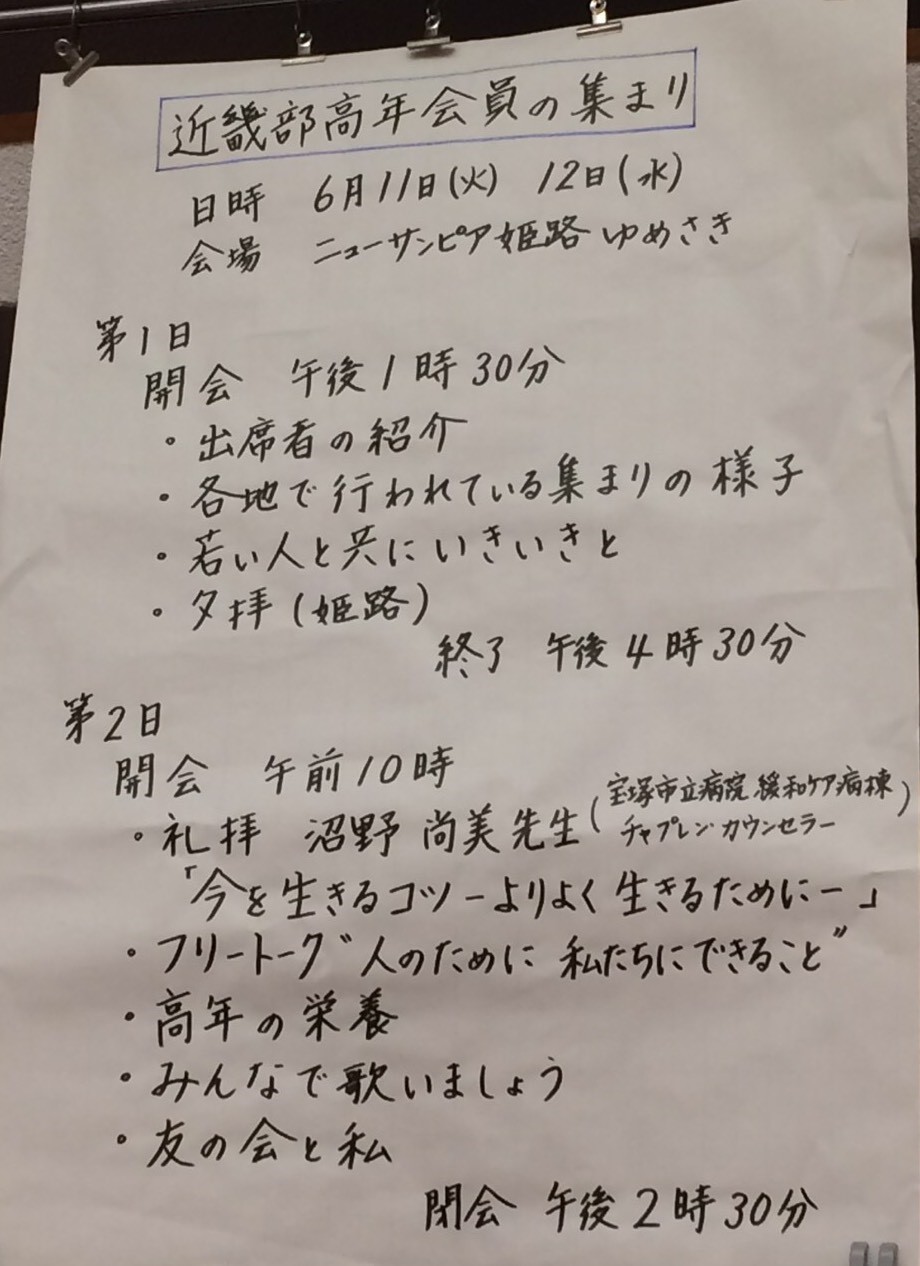 近畿部高年会員の集まり
日時 6月11日(火) 12日(水)
会場 ニューサンピア姫路ゆめさき
第1日
開会 午後1時30分
・出席者の紹介
・各地で行われている集まりの様子
・若い人と共にいきいきと
・夕拝(姫路)
終了 午後4時30分
第2日
開会 午前10時
・礼拝 沼野尚美先生(宝塚市立病院緩和ケア病棟
チャプレン・カウンセラー)
「今を生きるコツーよりよく生きるためにー」
・フリートーク"人のために 私たちにできること"
・高年の栄養
・みんなで歌いましょう
・友の会と私
閉会 午後2時30分